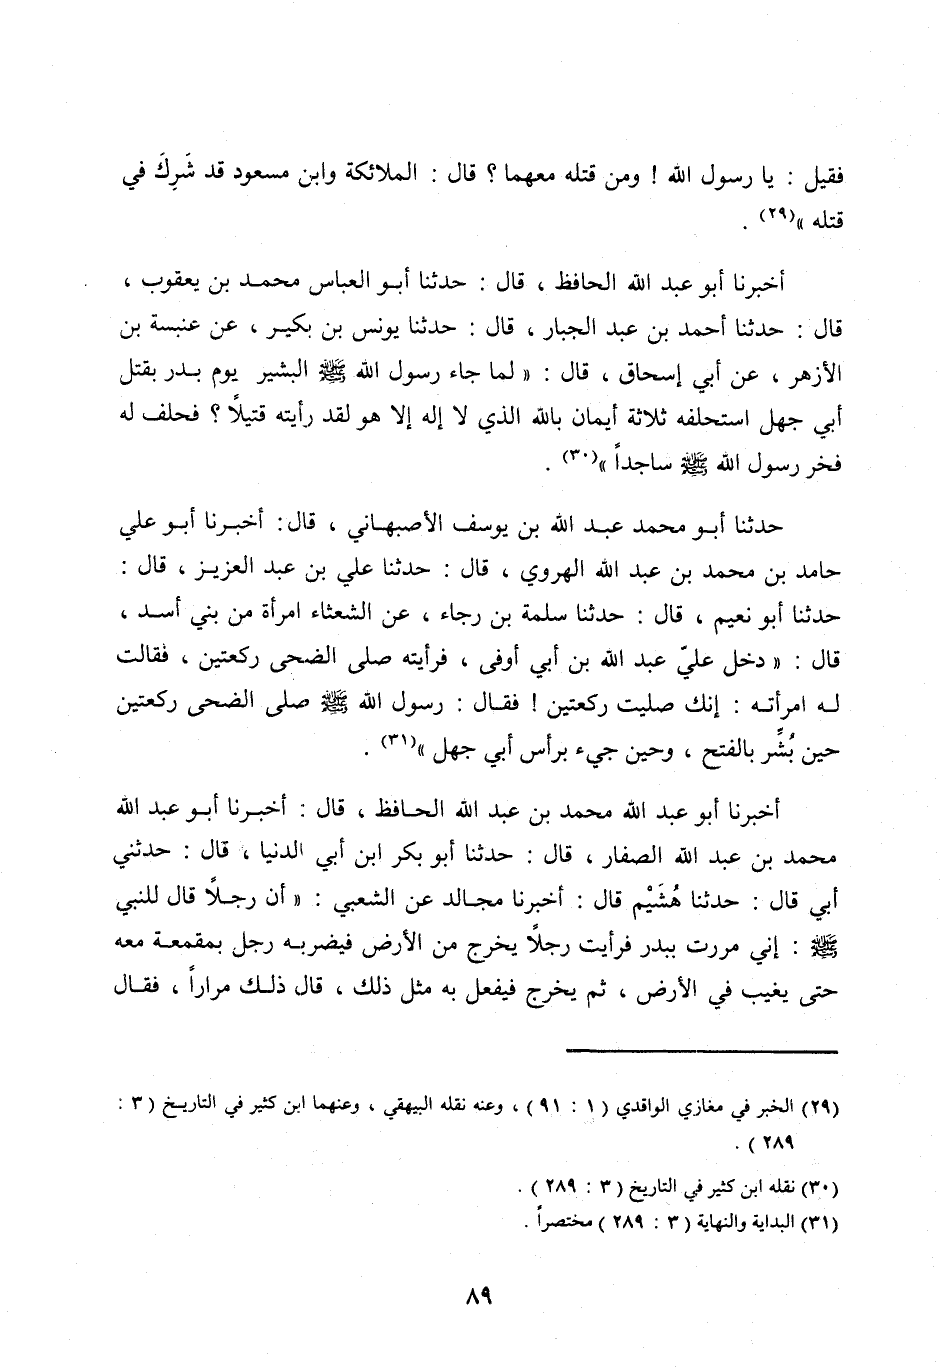 فقيل : يا رسول الله ! ومن قتله معهما ؟ قال : الملائكة وابن مسعود قد شَرِكَ في
قتله »(٢٩) .
أخبرنا أبو عبد الله الحافظ ، قال : حدثنا أبو العباس محمد بن يعقوب ،
قال : حدثنا أحمد بن عبد الجبار ، قال : حدثنا يونس بن بكير ، عن عنبسة بن
الأزهر ، عن أبي إسحاق ، قال : « لما جاء رسول الله ﷺ البشير يوم بدر بقتل
أبي جهل استحلفه ثلاثة أيمان بالله الذي لا إله إلا هو لقد رأيته قتيلًا ؟ فحلف له
فخر رسول الله ﷺ ساجداً »(٣٠) .
حدثنا أبو محمد عبد الله بن يوسف الأصبهاني ، قال : أخبرنا أبو علي
حامد بن محمد بن عبد الله الهروي ، قال : حدثنا علي بن عبد العزيز ، قال :
حدثنا أبو نعيم ، قال : حدثنا سلمة بن رجاء ، عن الشعثاء امرأة من بني أسد ،
قال : « دخل عليّ عبد الله بن أبي أوفى ، فرأيته صلى الضحى ركعتين ، فقالت
له امرأته : إنك صليت ركعتين ! فقال : رسول الله ﷺ صلى الضحى ركعتين
حين بُشِّر بالفتح ، وحين جيء برأس أبي جهل »(٣١) .
أخبرنا أبو عبد الله محمد بن عبد الله الحافظ ، قال : أخبرنا أبو عبد الله
محمد بن عبد الله الصفار ، قال : حدثنا أبو بكر ابن أبي الدنيا ، قال : حدثني
أبي قال : حدثنا هُشَيْم قال : أخبرنا مجالد عن الشعبي : « أن رجلًا قال للنبي
ﷺ : إني مررت ببدر فرأيت رجلًا يخرج من الأرض فيضربه رجل بمقمعة معه
حتى يغيب في الأرض ، ثم يخرج فيفعل به مثل ذلك ، قال ذلك مراراً ، فقال
(٢٩) الخبر في مغازي الواقدي ( ١ : ٩١ ) ، وعنه نقله البيهقي ، وعنهما ابن كثير في التاريخ ( ٣ :
٢٨٩ ) .
(٣٠) نقله ابن كثير في التاريخ ( ٣ : ٢٨٩ ) .
(٣١) البداية والنهاية ( ٣ : ٢٨٩ ) مختصراً .
٨٩